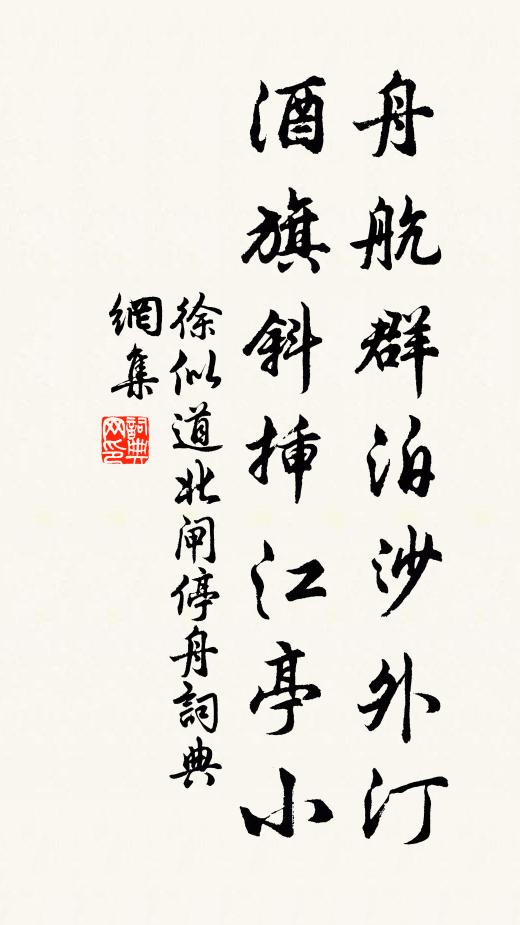 舟航群泊沙外汀
酒旗斜插江亭小
徐似道北闸停舟詞典
網集
詞典
网印